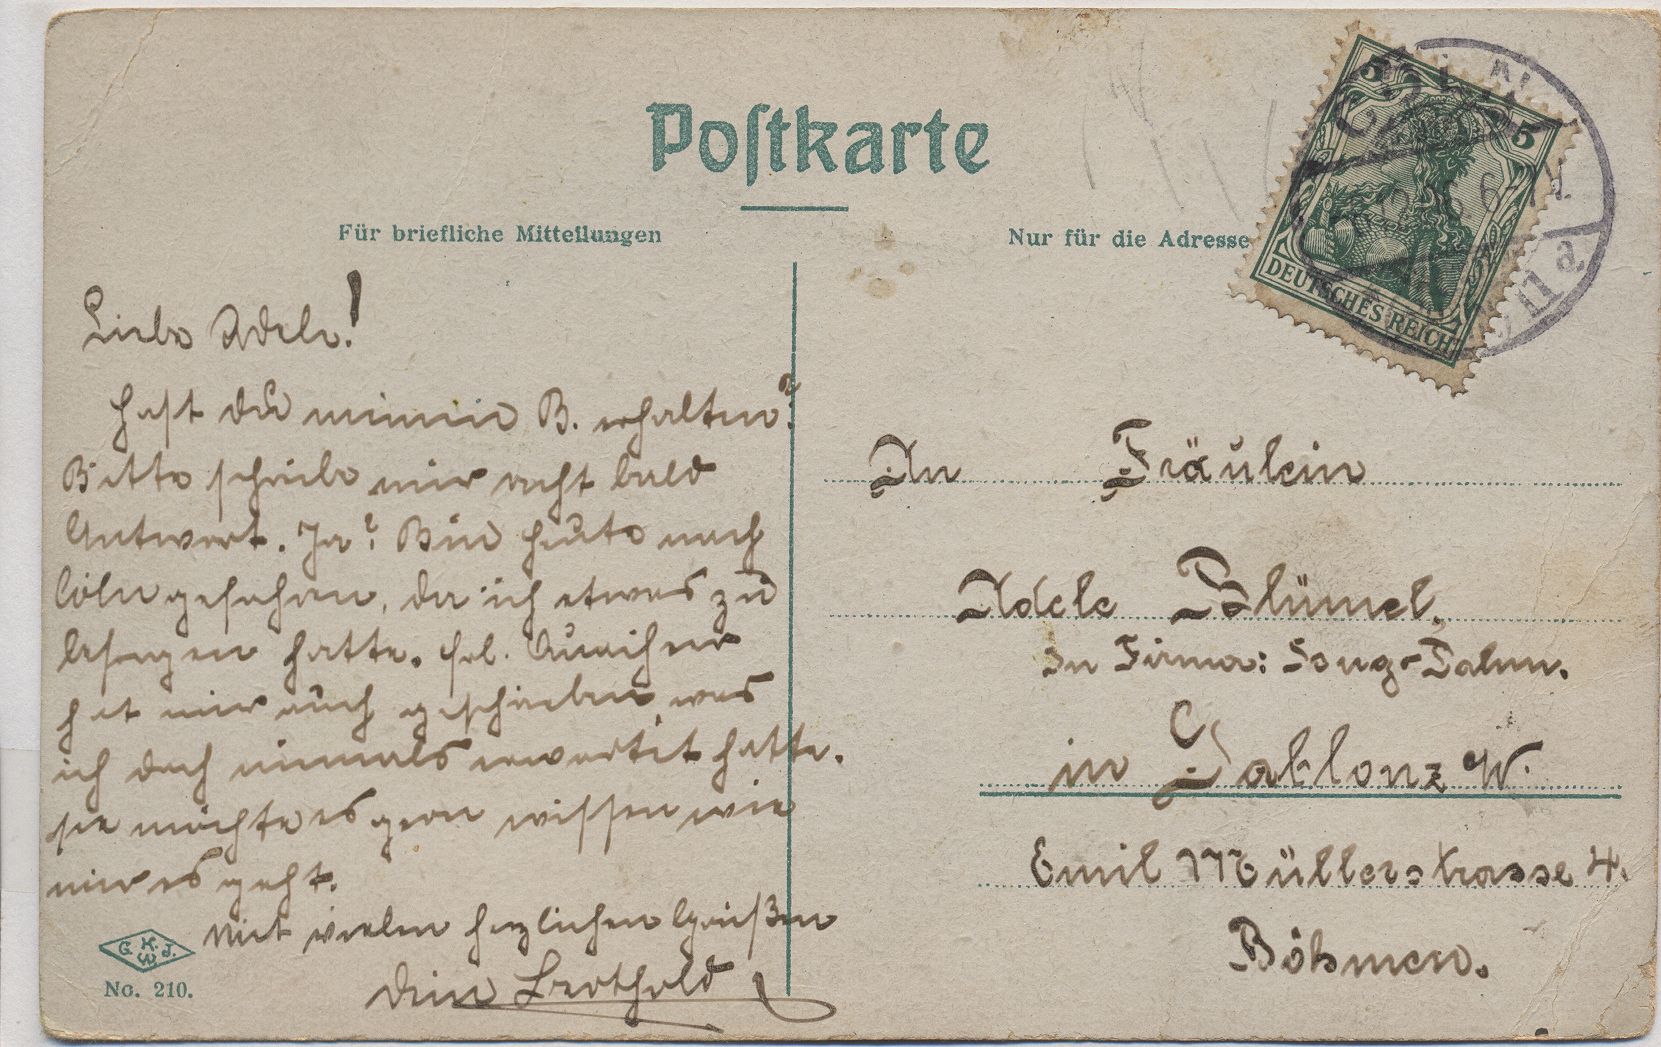 Postkarte
Für briefliche Mitteilungen
Nur für die Adresse
5 5
DEUTSCHES REICH
6-7 N.
11 a.
Liebe Adele!
Hast du meine B. erhalten?
Bitte schreibe mir recht bald
Antwort. Ja? Bin heute nach
Cöln gefahren, da ich etwas zu
besorgen hatte. Frl.
hat mir auch geschrieben, was
ich doch niemals erwartet hatte.
sie möchte es gern wissen wie
mir es geht.
Mit vielen herzlichen Grüßen
Dein Berthold
G. K. W. J.
No. 210.
An Fräulein
Adele Blümel,
in Firma:
in Gablonz W.
Emil Müllerstrasse 4.
Böhmen.